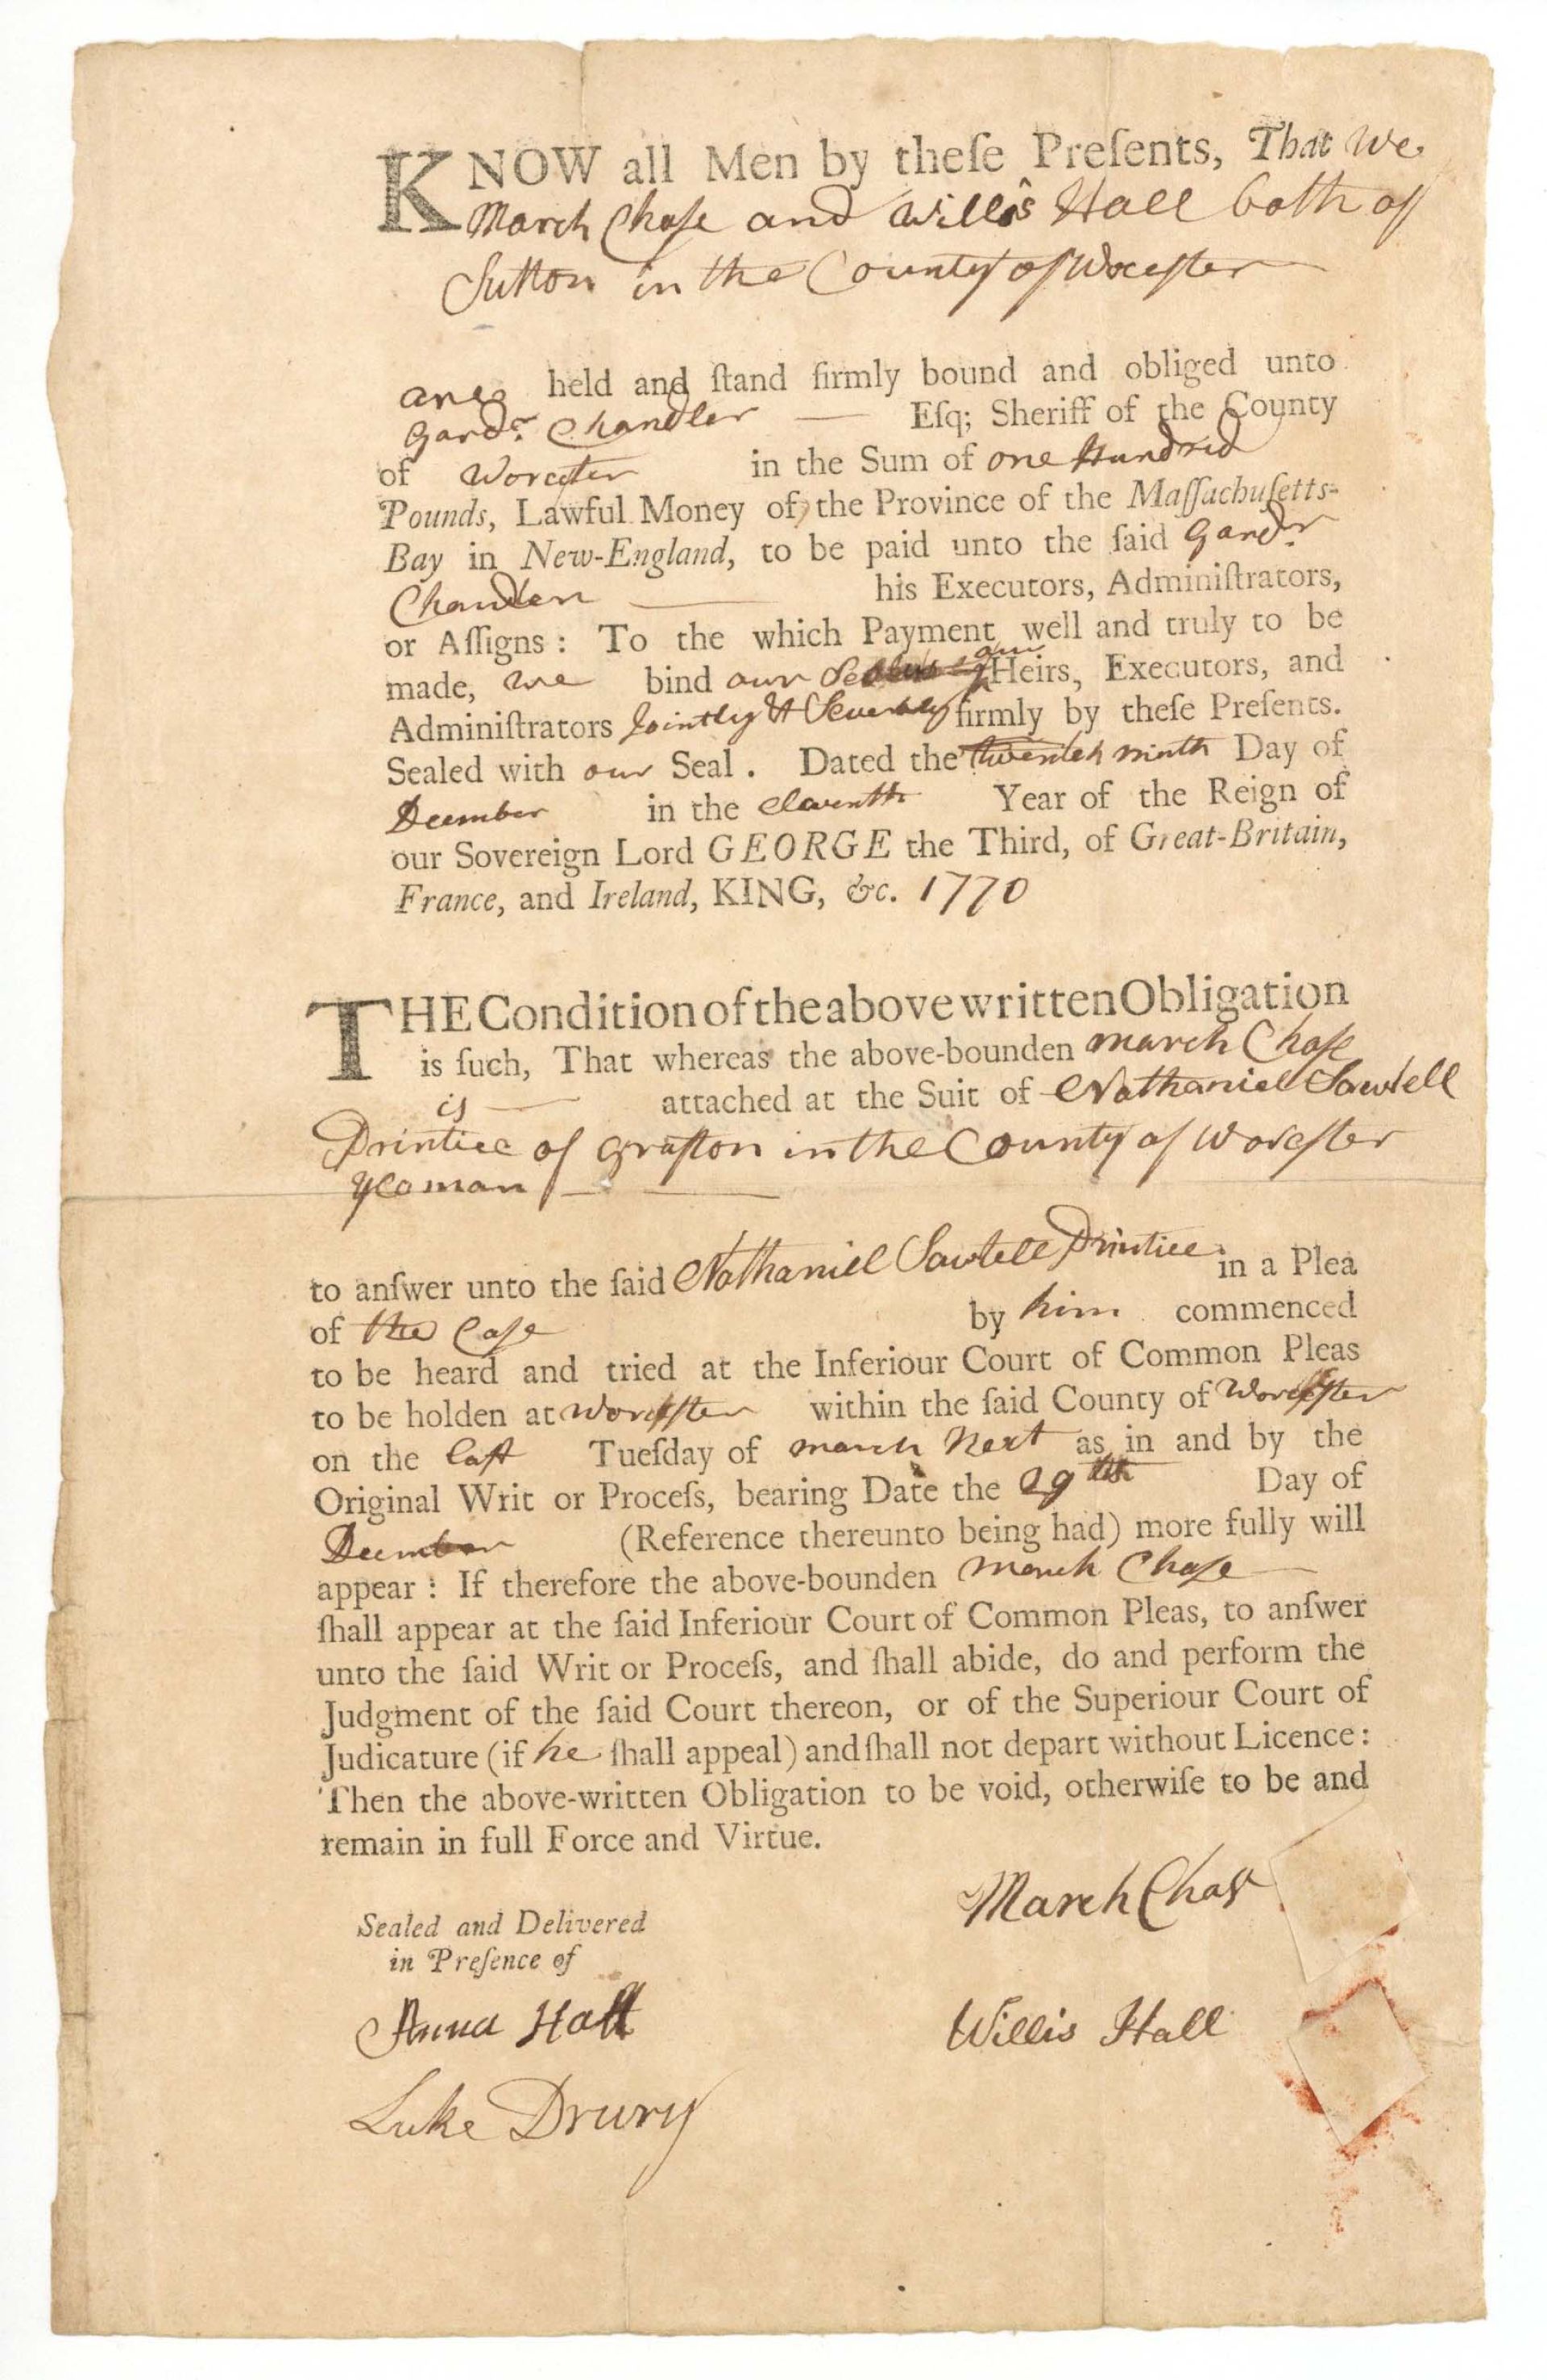 KNOW all Men by theſe Preſents, That We
March Chaſe and Willis Hall both of
Sutton in the County of Worceſter
are held and ſtand firmly bound and obliged unto
Gardr. Chandler — Eſq; Sheriff of the County
of Worcester in the Sum of one Hundrid
Pounds, Lawful Money of the Province of the Maſſachuſetts-
Bay in New-England, to be paid unto the ſaid Gardr.
Chandler — his Executors, Adminiſtrators,
or Aſſigns : To the which Payment well and truly to be
made, we bind our our Heirs, Executors, and
Adminiſtrators Jointly & Severaly firmly by theſe Preſents.
Sealed with our Seal . Dated the twenteh ninth Day of
December in the Eleventh Year of the Reign of
our Sovereign Lord GEORGE the Third, of Great-Britain,
France, and Ireland, KING, &c. 1770
THE Condition of the above written Obligation
is ſuch, That whereas the above-bounden March Chaſe
is — attached at the Suit of Nathaniel Sawtell
Printice of Grafton in the County of Worceſter
yeoman — —
to anſwer unto the ſaid Nathaniel Sawtell Printice in a Plea
of the Caſe by him commenced
to be heard and tried at the Inferiour Court of Common Pleas
to be holden at Worceſter within the ſaid County of Worceſter
on the laſt Tueſday of march Next as in and by the
Original Writ or Proceſs, bearing Date the 29th Day of
December (Reference thereunto being had) more fully will
appear : If therefore the above-bounden March Chaſe —
ſhall appear at the ſaid Inferiour Court of Common Pleas, to anſwer
unto the ſaid Writ or Proceſs, and ſhall abide, do and perform the
Judgment of the ſaid Court thereon, or of the Superiour Court of
Judicature (if he ſhall appeal) and ſhall not depart without Licence :
Then the above-written Obligation to be void, otherwiſe to be and
remain in full Force and Virtue.
March Chaſe
Sealed and Delivered
in Preſence of
Anna Hall
Willis Hall
Luke Drury